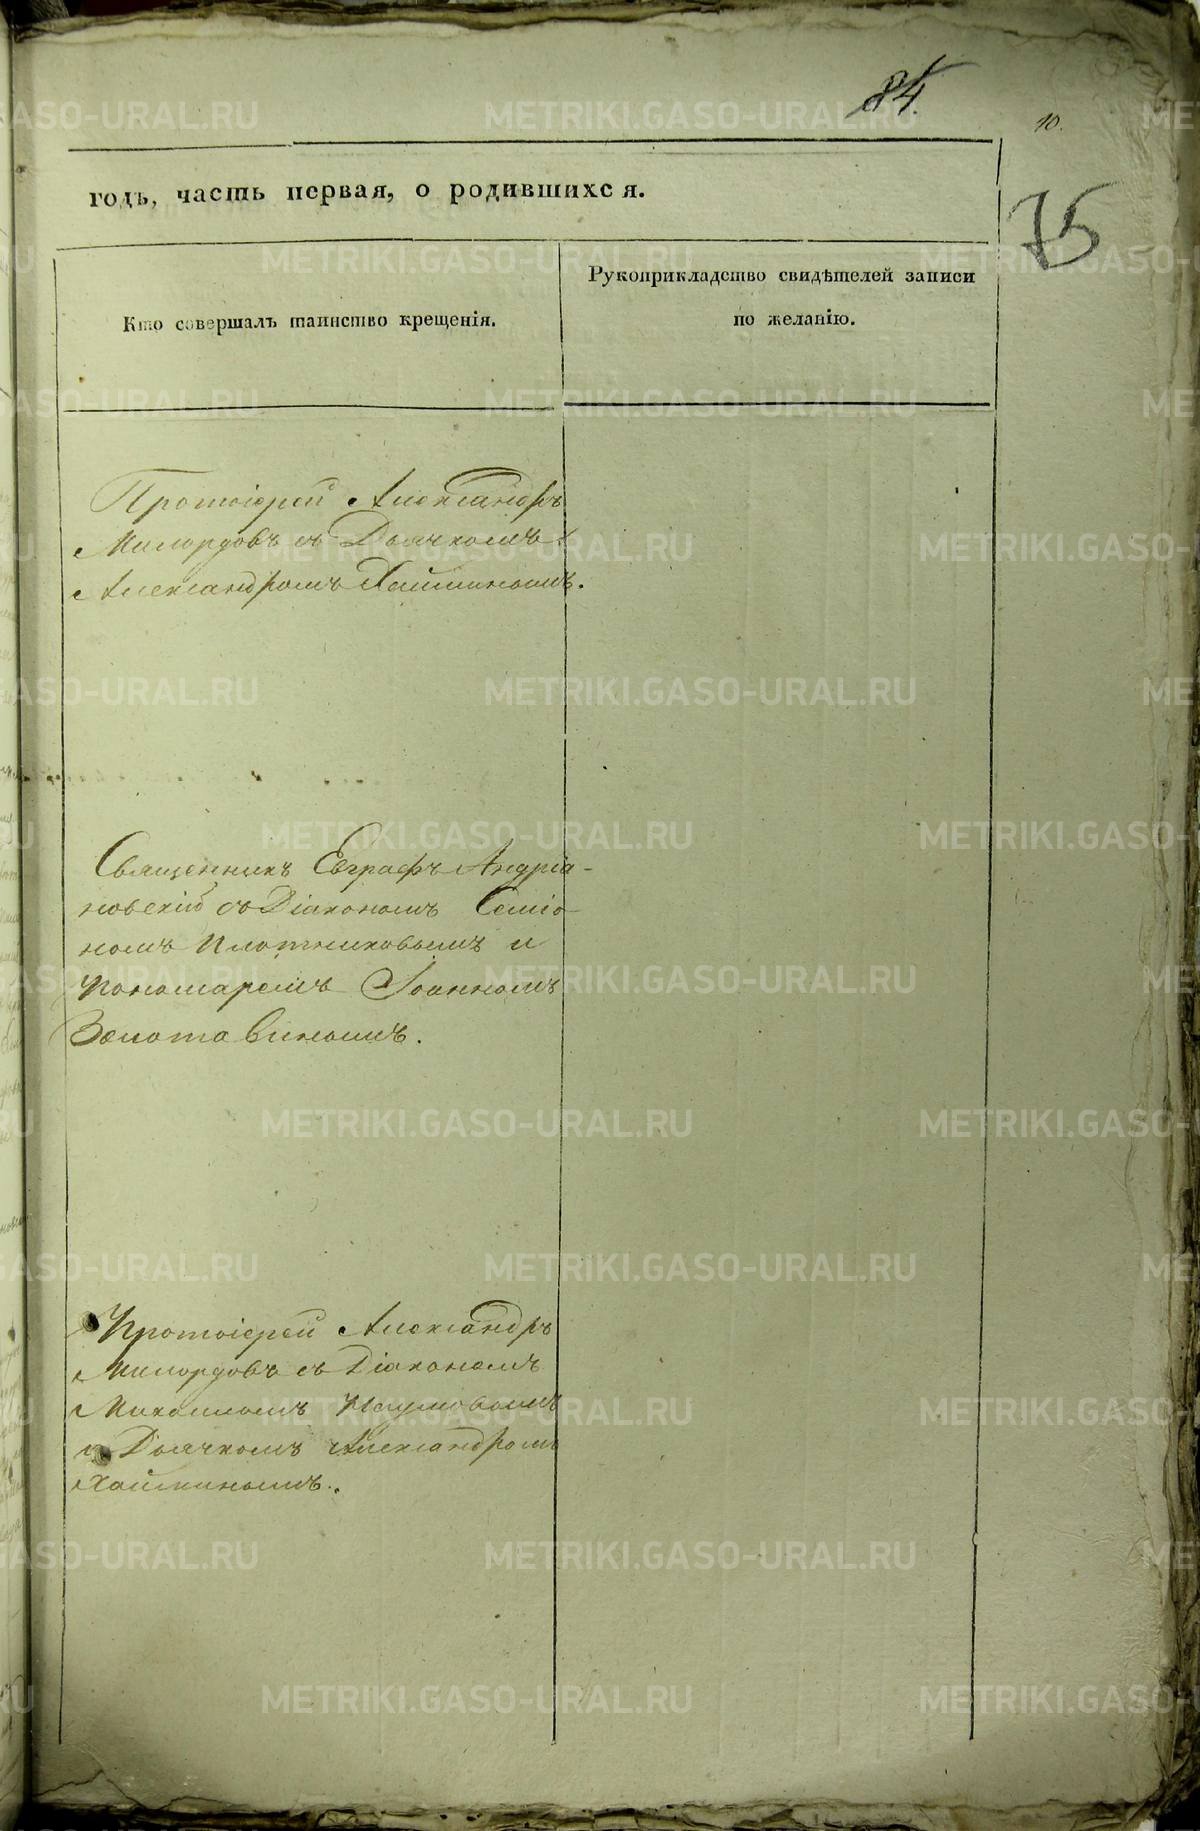 84
10.
75
годъ, часть первая, о родившихся.
Кто совершалъ таинство крещенія.
Рукоприкладство свидѣтелей записи
по желанію.
Протоіерей Александръ
Милордовъ съ Дьячкомъ
Александромъ Хайминымъ.
Священникъ Евграфъ Андріа-
новскій съ Діакономъ Семіо-
номъ Плотниковымъ и
Пономаремъ Іоанномъ
Золотавинымъ.
Протоіерей Александръ
Милордовъ съ Діакономъ
Михаиломъ Наумовымъ
и Дьячкомъ Александромъ
Хайминымъ.
METRIKI.GASO-URAL.RU